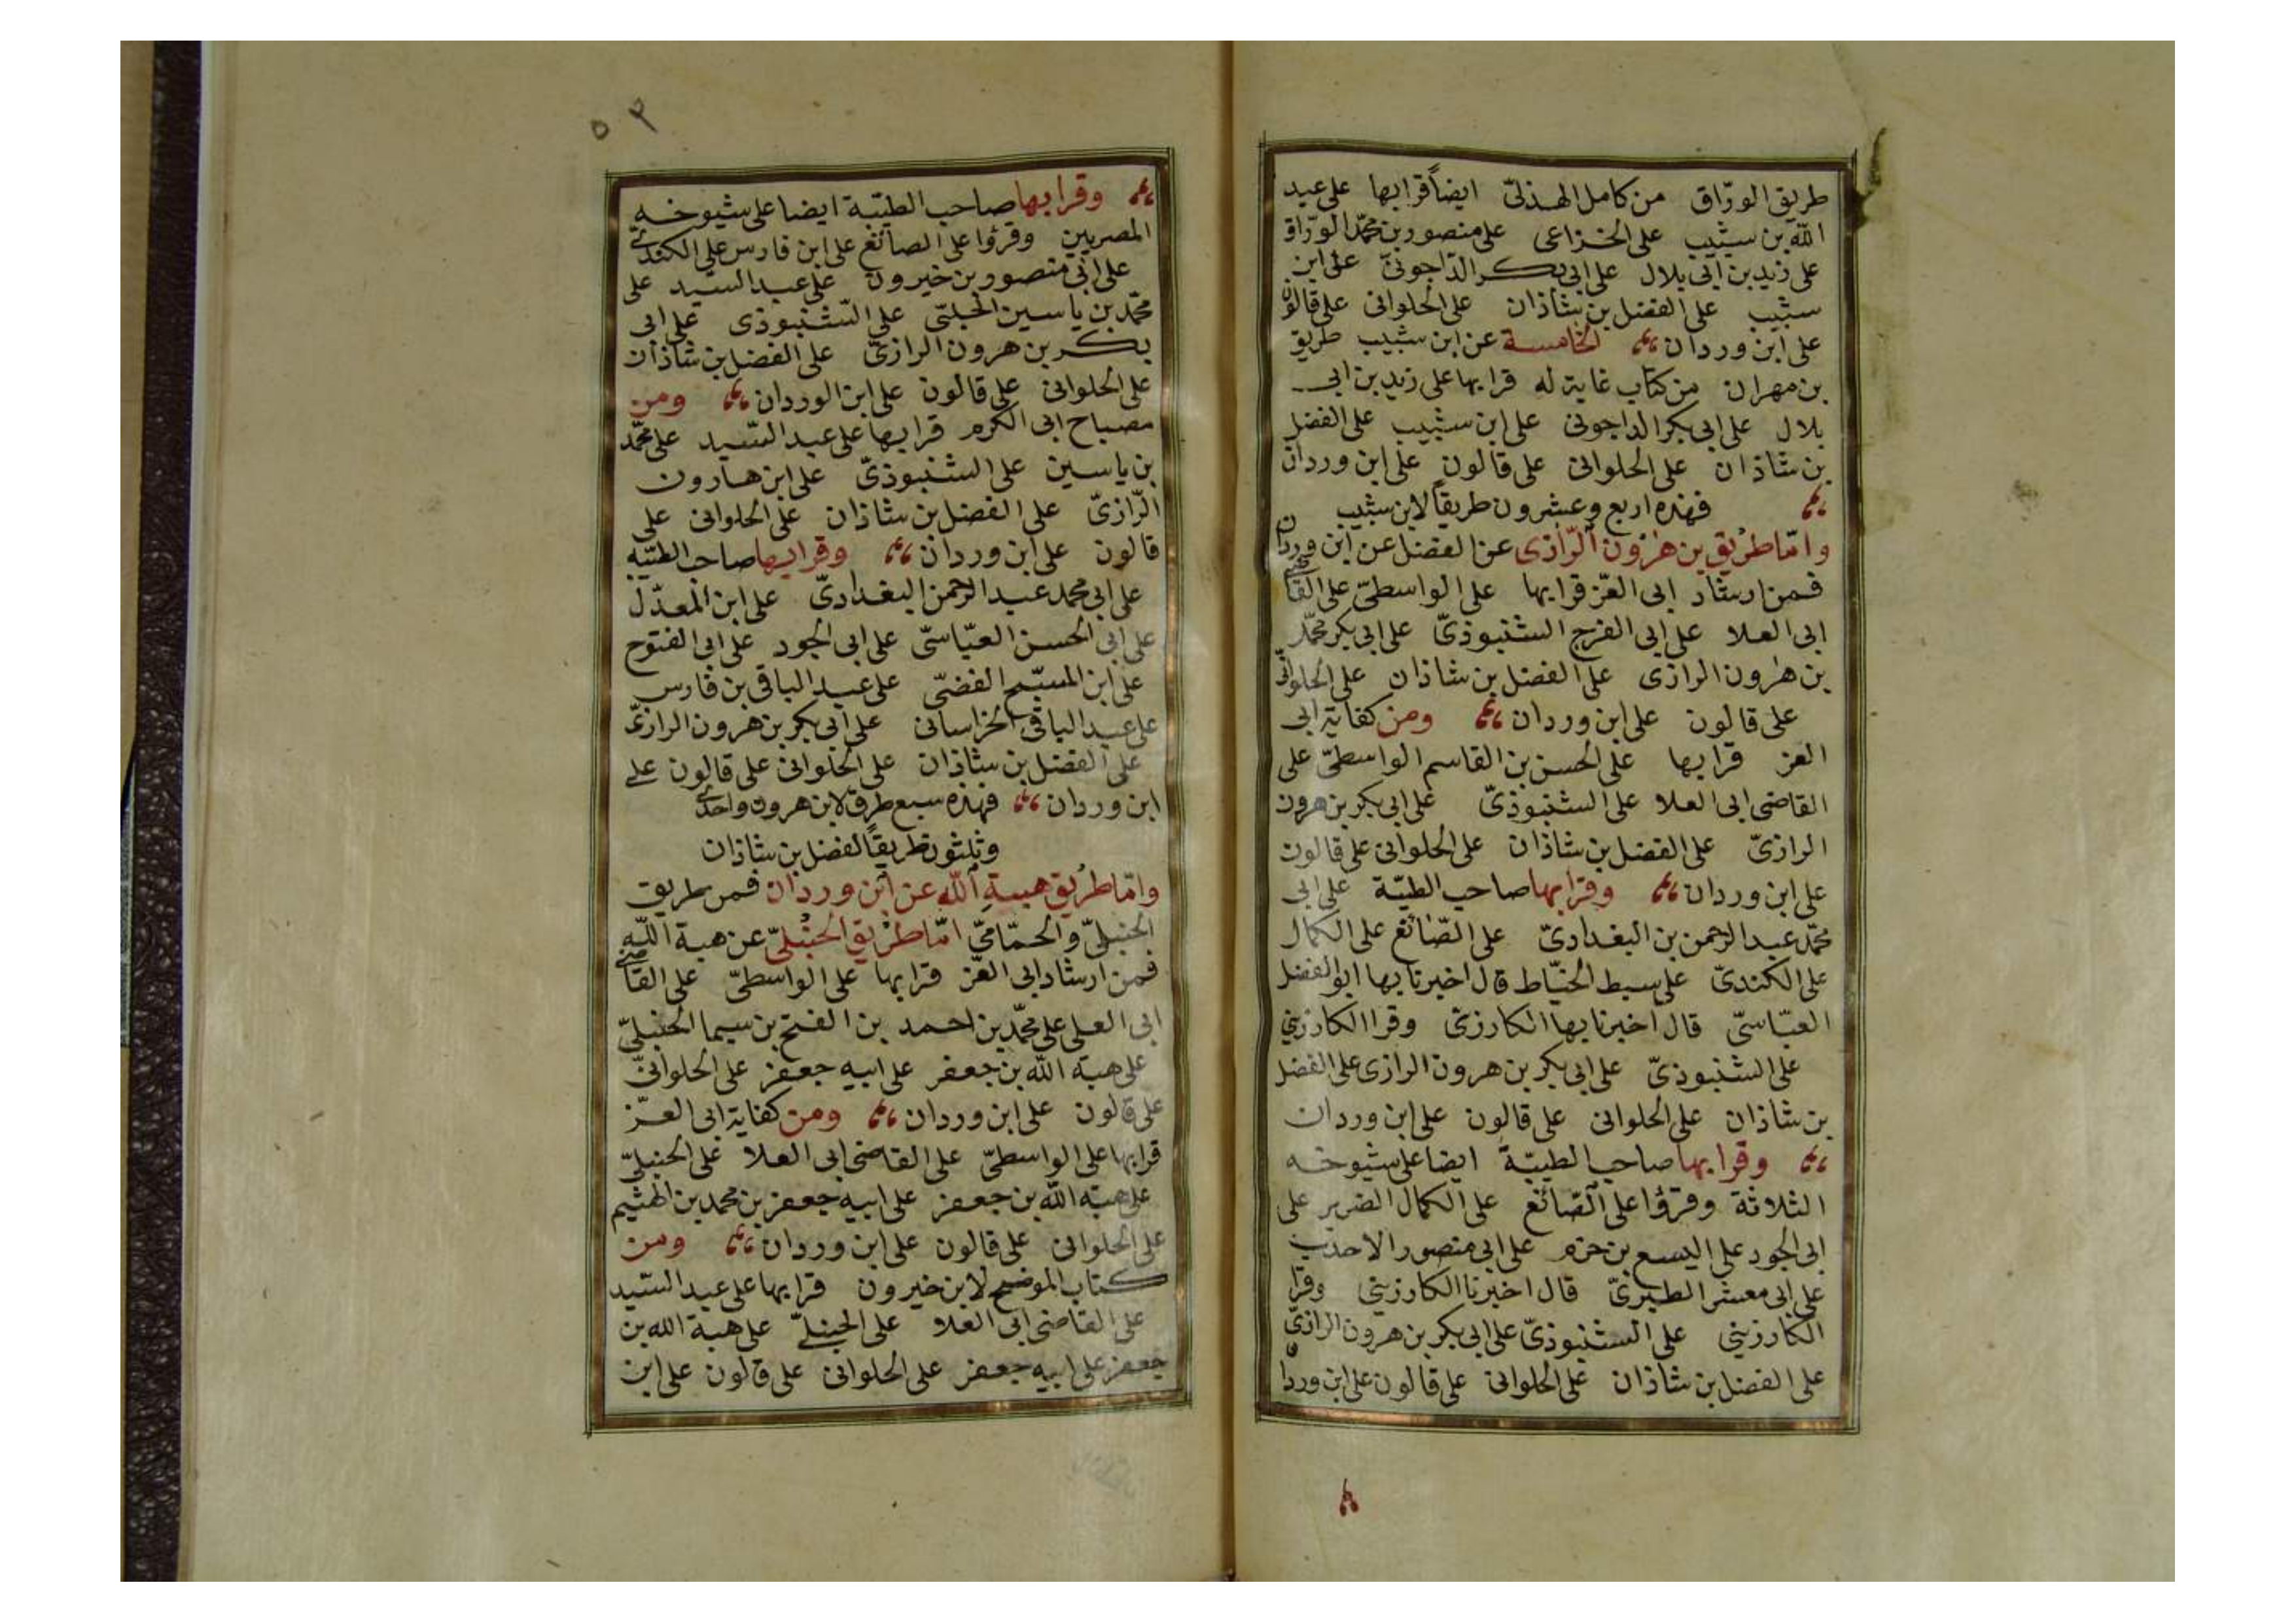 طريق الورّاق من كامل الهذلىّ ايضاً قرا بها على عبد
الله بن شبيب على الخزاعى على منصور بن محمّد الورّاق
على زيد بن ابى بلال على ابى بكر الدّاجونىّ على ابن
شبيب على الفضل بن شاذان على الحلوانى على قالون
على ابن وردان الخامسة عن ابن شبيب طريق
بن مهران من كتاب غاية له قرا بها على زيد بن ابى
بلال على ابى بكر الداجونى على ابن شبيب على الفضل
بن شاذان على الحلوانى على قالون على ابن وردان
فهذه اربع وعشرون طريقاً لابن شبيب
وامّا طريق بن هرون الرّازى عن الفضل عن ابن وردان
فمن ارشاد ابى العزّ قرا بها على الواسطىّ على القاضى
ابى العلا على ابى الفرج الشنبوذىّ على ابى بكر محمّد
بن هرون الرازى على الفضل بن شاذان على الحلوانى
على قالون على ابن وردان ومن كفاية ابى
العز قرا بها على الحسن بن القاسم الواسطىّ على
القاضى ابى العلا على الشنبوذىّ على ابى بكر بن هرون
الرازىّ على الفضل بن شاذان على الحلوانى على قالون
على ابن وردان وقرا بها صاحب الطيّبة على ابى
محمّد عبد الرحمن بن البغدادىّ على الصّائغ على الكمال
على الكندىّ على سبط الخيّاط قال اخبرنا بها ابو الفضل
العبّاسىّ قال اخبرنا بها الكارزينى وقرا الكارزينى
على الشنبوذىّ على ابى بكر بن هرون الرازى على الفضل
بن شاذان على الحلوانى على قالون على ابن وردان
وقرا بها صاحب الطيبّة ايضا على شيوخه
الثلاثة وقرؤا على الصّائغ على الكمال الضرير على
ابى الجود على اليسع بن حزم على ابى منصور الاحدب
على ابى معشر الطبرىّ قال اخبرنا الكارزينى وقرا
الكارزينى على الشنبوذىّ على ابى بكر بن هرون الرازىّ
على الفضل بن شاذان على الحلوانى على قالون على ابن وردان
٥٢
وقرا بها صاحب الطيّبة ايضا على شيوخه
المصريين وقرؤا على الصائغ على ابن فارس على الكندىّ
على ابى منصور بن خيرون على عبد السيّد على
محمّد بن ياسين الحلبىّ على الشّنبوذى على ابى
بكر بن هرون الرازىّ على الفضل بن شاذان
على الحلوانى على قالون على ابن الوردان ومن
مصباح ابى الكرم قرا بها على عبد السّيد على محمّد
بن ياسين على الشنبوذىّ على ابن هارون
الرّازىّ على الفضل بن شاذان على الحلوانى على
قالون على ابن وردان وقرا بها صاحب الطيّبه
على ابى محمد عبد الرحمن البغدادىّ على ابن المعدّل
على ابى الحسن العبّاسىّ على ابى الجود على ابى الفتوح
على ابن المسبّح الفضّى على عبد الباقى بن فارس
على عبد الباقى الخراسانى على ابى بكر بن هرون الرازىّ
على الفضل بن شاذان على الحلوانى على قالون على
ابن وردان فهذه سبع طرق لابن هرون واحدى
وثلثون طريقاً لفضل بن شاذان
وامّا طريق هبة الله عن ابن وردان فمن طريق
الحنبلىّ والحمّامىّ امّا طريق الحنبلىّ عن هبة الله
فمن ارشاد ابى العّز قرا بها على الواسطىّ على القاضى
ابى العلى على محمّد بن احمد بن الفتح بن سيما الحنبلىّ
على هبة الله بن جعفر على ابيه جعفر على الحلوانىّ
على قالون على ابن وردان ومن كفاية ابى العزّ
قرا بها على الواسطىّ على القاضى ابى العلا على الحنبلىّ
على هبة الله بن جعفر على ابيه جعفر بن محمد بن الهثيم
على الحلوانى على قالون على ابن وردان ومن
كتاب الموضح لابن خيرون قرا بها على عبد السّيد
على القاضى ابى العلا على الحنبلىّ على هبة الله بن
جعفر على ابيه جعفر على الحلوانى على قالون على ابن